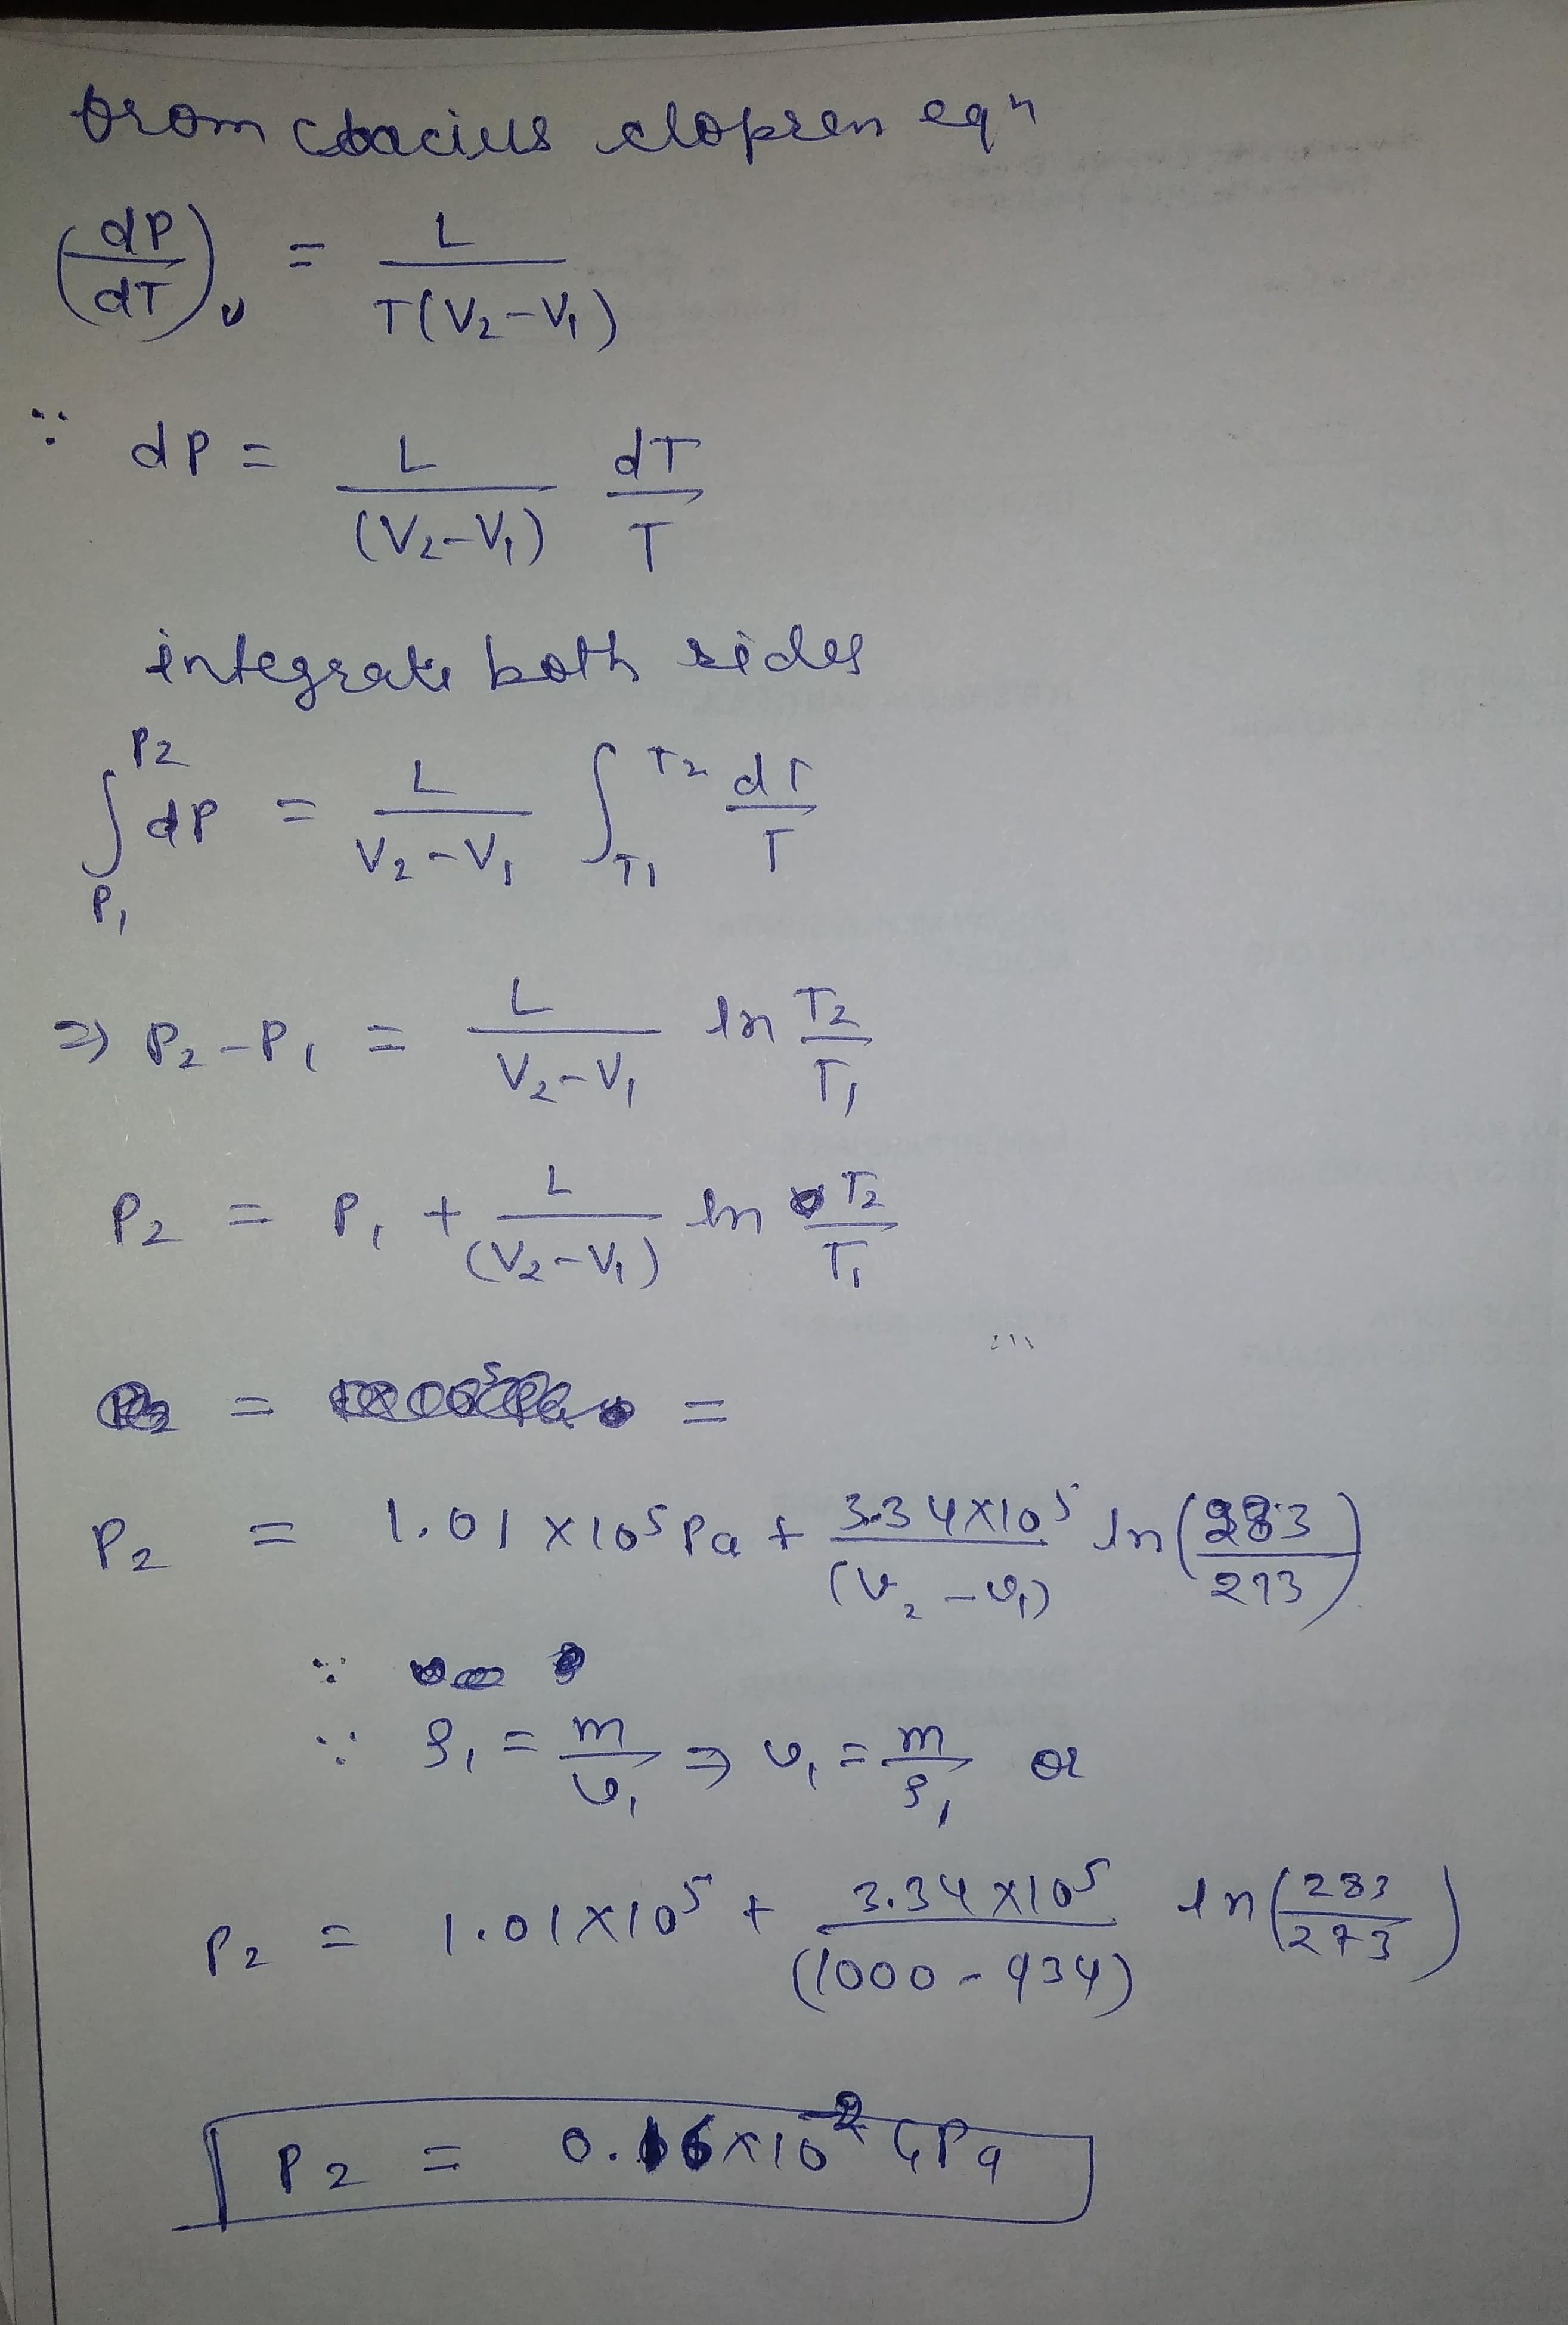 from clacius clopren eqn
(dP/dT)v = L / T(V₂-V₁)
∵ dP = L/(V₂-V₁) dT/T
integrate both sides
∫_{P₁}^{P₂} dP = L/(V₂-V₁) ∫_{T₁}^{T₂} dT/T
⇒ P₂-P₁ = L/(V₂-V₁) ln T₂/T₁
P₂ = P₁ + L/(V₂-V₁) ln T₂/T₁
= =
P₂ = 1.01×10⁵ Pa + 3.34×10⁵/(v₂-v₁) ln(283/273)
∵
∵ ρ₁ = m/v₁ ⇒ v₁ = m/ρ₁ or
P₂ = 1.01×10⁵ + 3.34×10⁵/(1000-934) ln(283/273)
P₂ = 0.16×10⁻² GPa